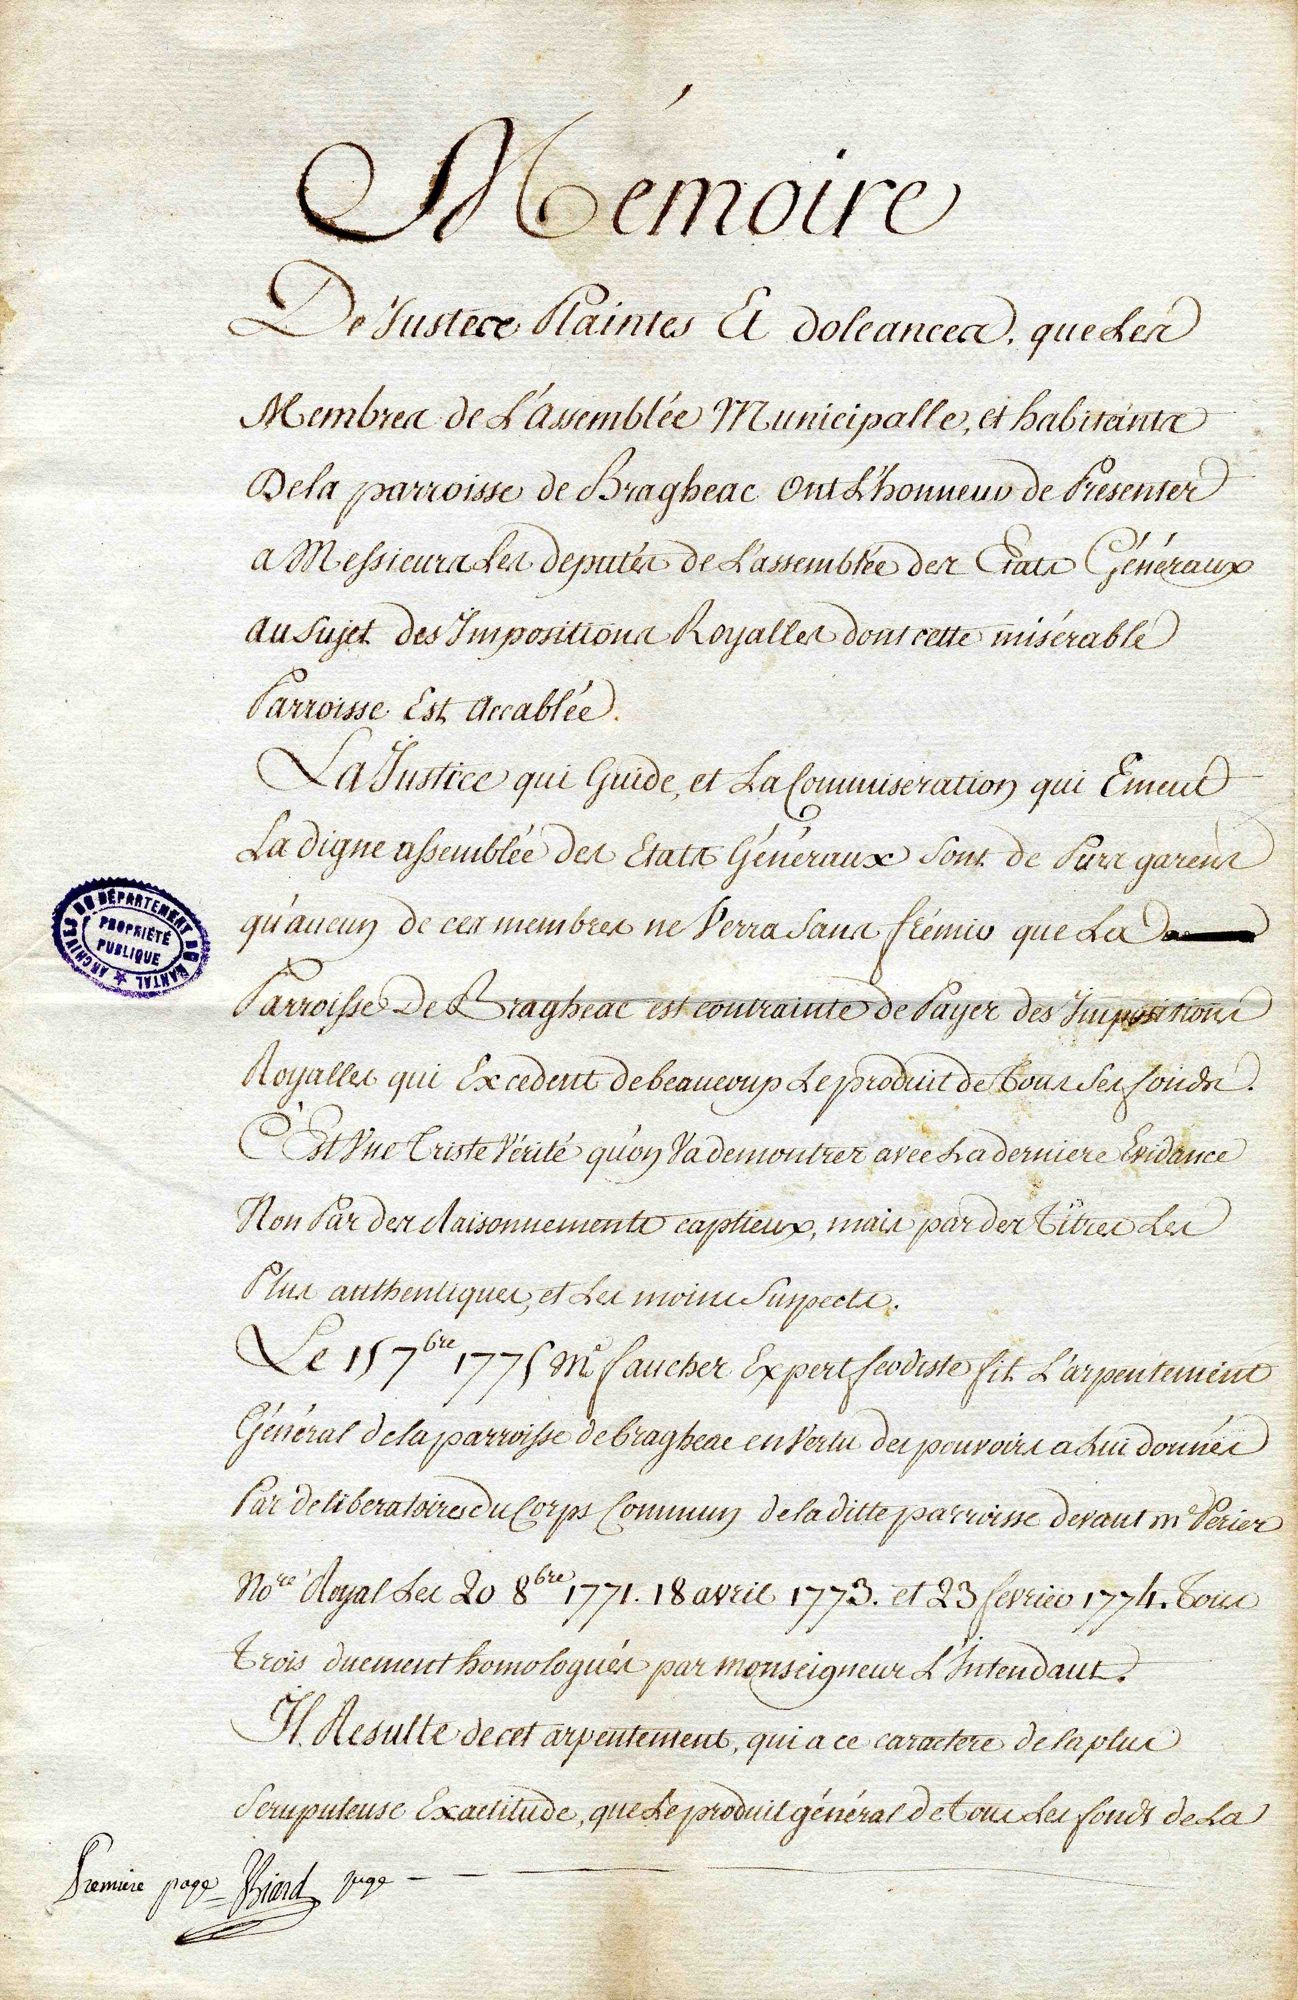 Mémoire
De Justece Plaintes Et doleances. que Les
Membres de L'assemblée Municipalle, et habitants
De la parroisse de Bragheac ont L'honneur de Présenter
a Messieurs Les deputés de L'assemblée des Etats Généraux
au sujet des Impositions Royalles dont cette misérable
Parroisse Est Accablée.
La Justice qui Guide, et La Commiseration qui Emeut
La digne assemblée des Etats Généraux sont de Surs garens
qu'aucun de ces membres ne Verra sans frémir que La
Parroisse De Bragheac est contrainte de Payer des Impositions
Royalles qui Excedent de beaucoup Le produit de tous Ses fonds.
C'Est Une Triste Vérité qu'on Va demontrer avec La derniere Evidance
Non Par des Raisonnements captieux, mais par des Titres Les
Plus authentiques, et Les moins Suspects.
Le 15 7bre 1775 Me faucher Expert feodiste fit L'arpentement
Général de la parroisse de bragheac en Vertu des pouvoirs a Lui donnés
Par deliberatoires du Corps Commun de la ditte parroisse devant me Périer
Nore Royal Les 20 8bre 1771. 18 avril 1773. et 23 fevrier 1774. Tous
Trois duement homologués par monseigneur L'Intendant.
Il Resulte de cet arpentement, qui a ce caractere de la plus
Scrupuleuse Exactitude, que Le produit général de tous Les fonds de La
Premiere page Biard juge
ARCHIVES DU DÉPARTEMENT DU CANTAL
PROPRIÉTÉ
PUBLIQUE